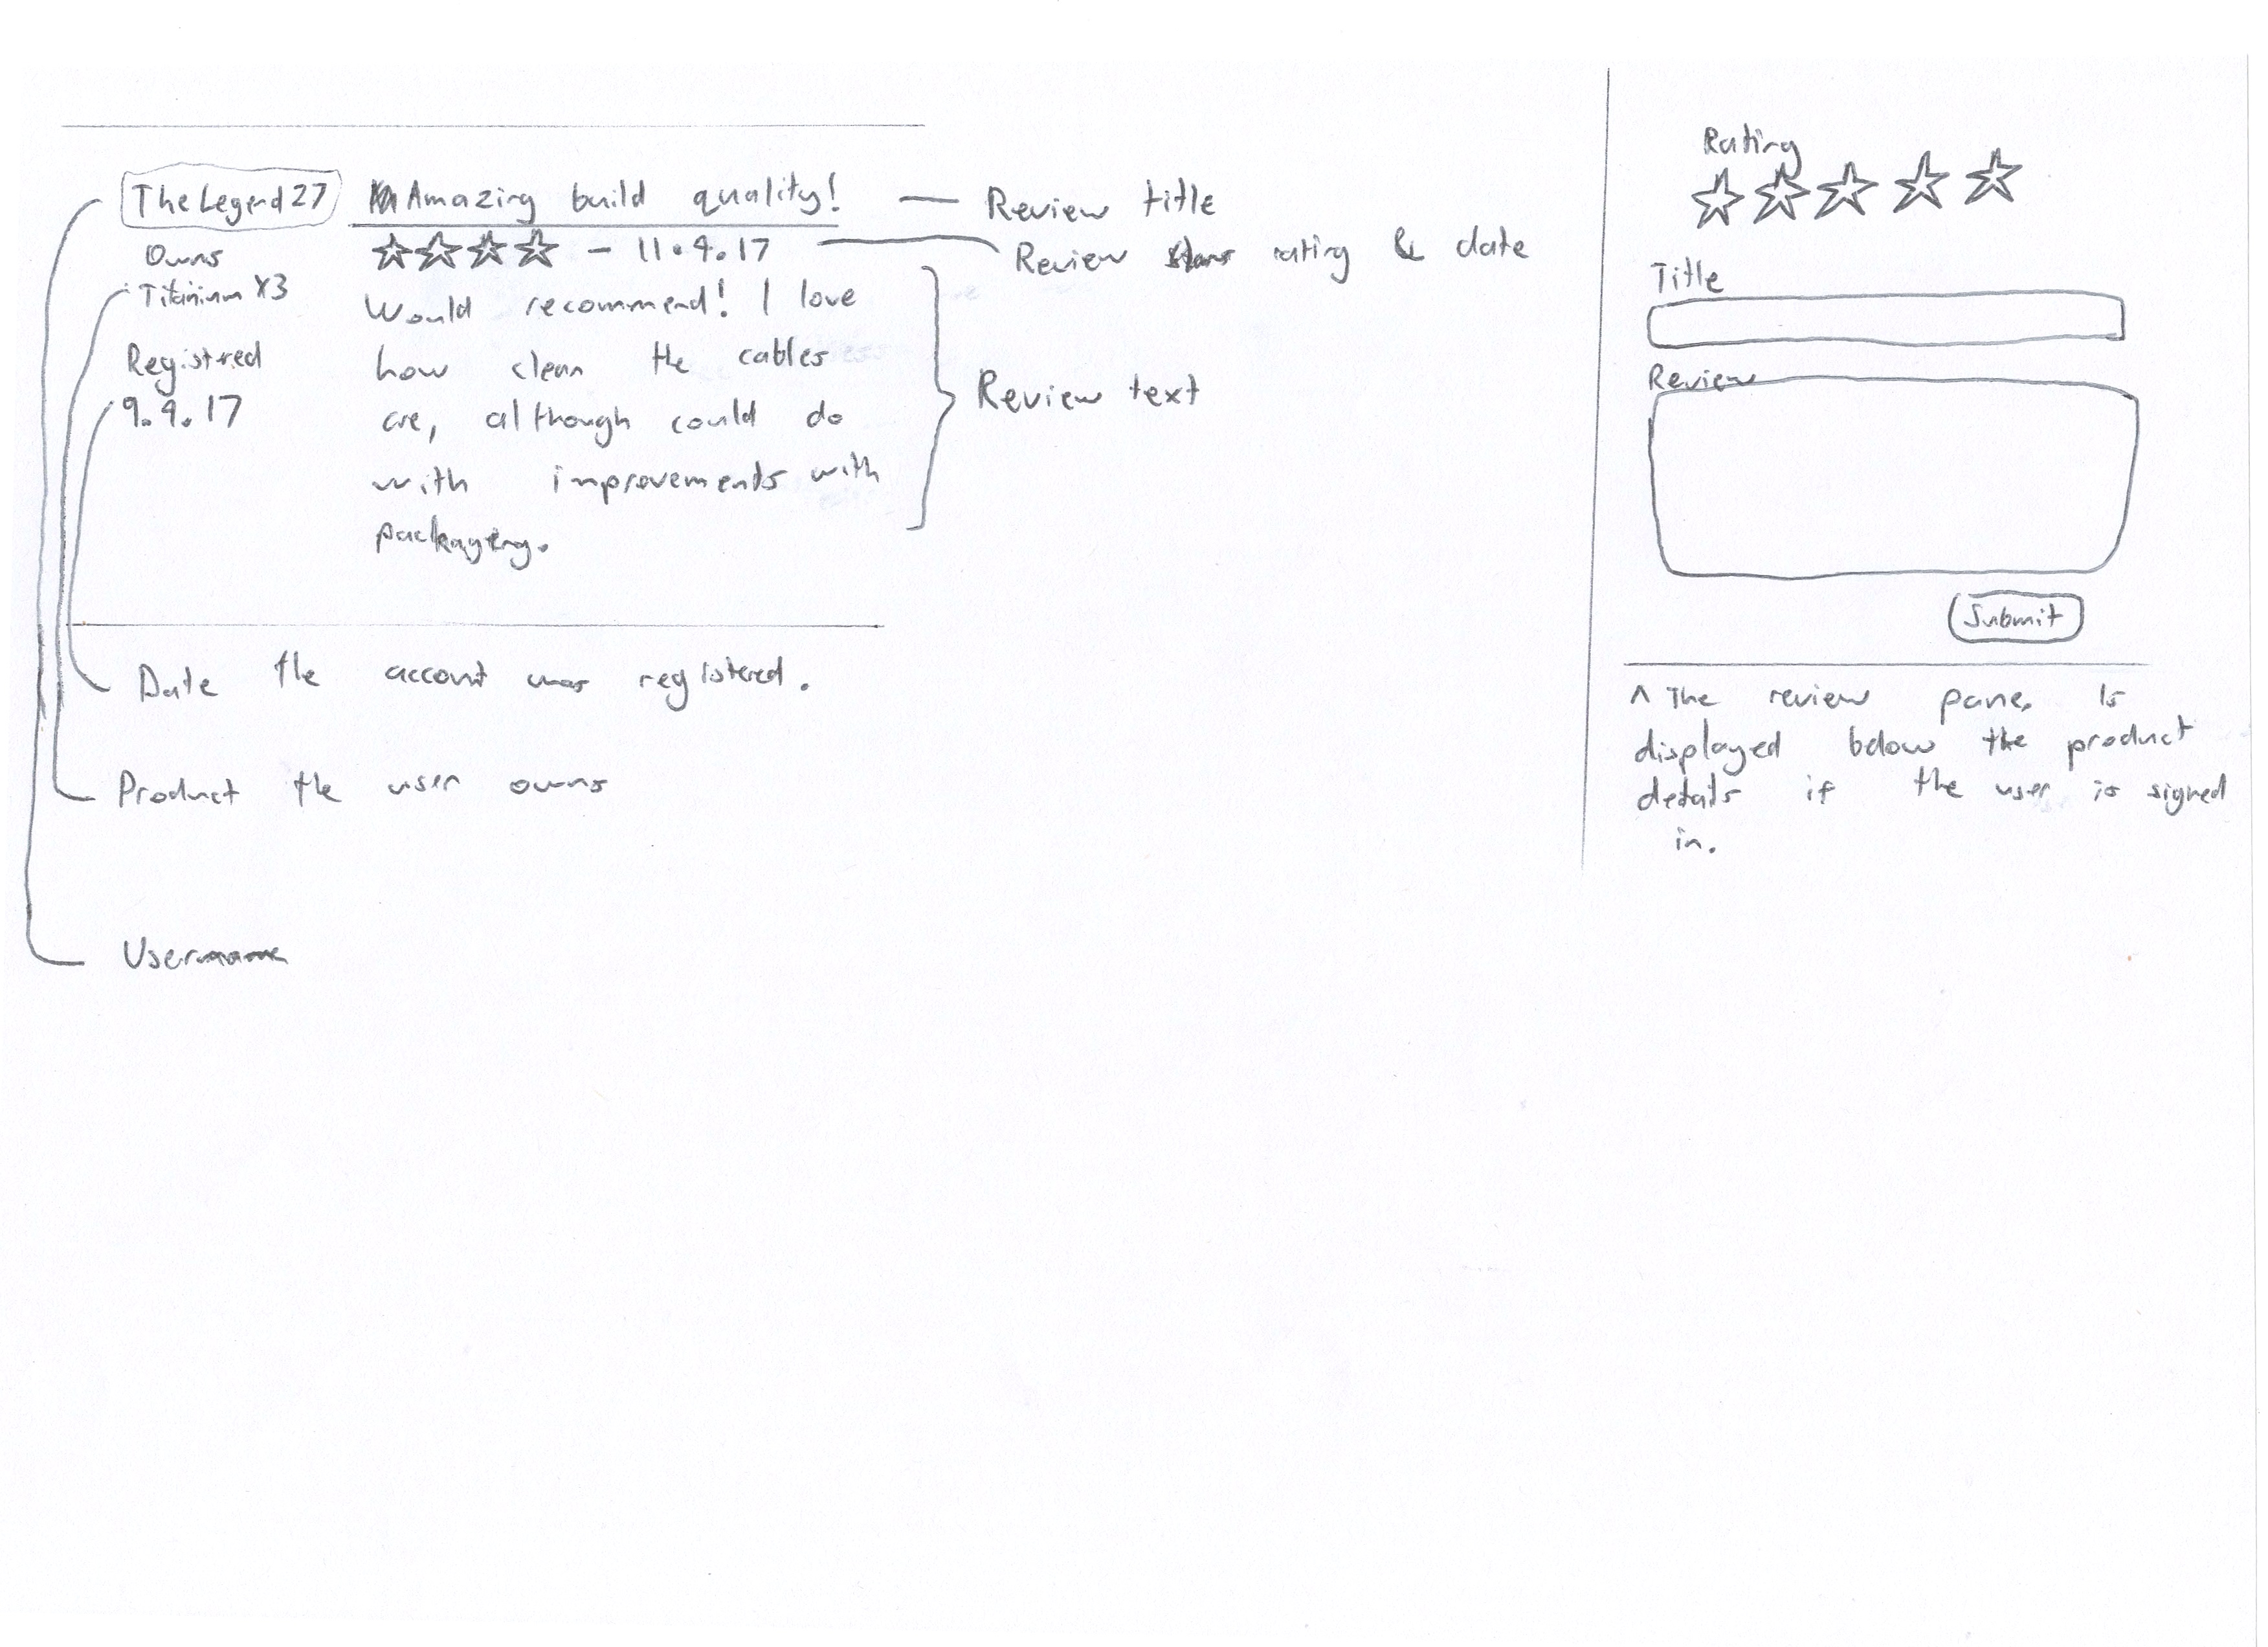 TheLegend27
Owns
Titanium X3
Registred
9.4.17
Amazing build quality!
- 11.4.17
Would recommend! I love
how clean the cables
are, although could do
with improvements with
packaging.
Review title
Review rating & date
Review text
Date the account was registered.
Product the user owns
Username
Rating
Title
Review
Submit
^ The review pane. Is
displayed below the product
details if the user is signed
in.